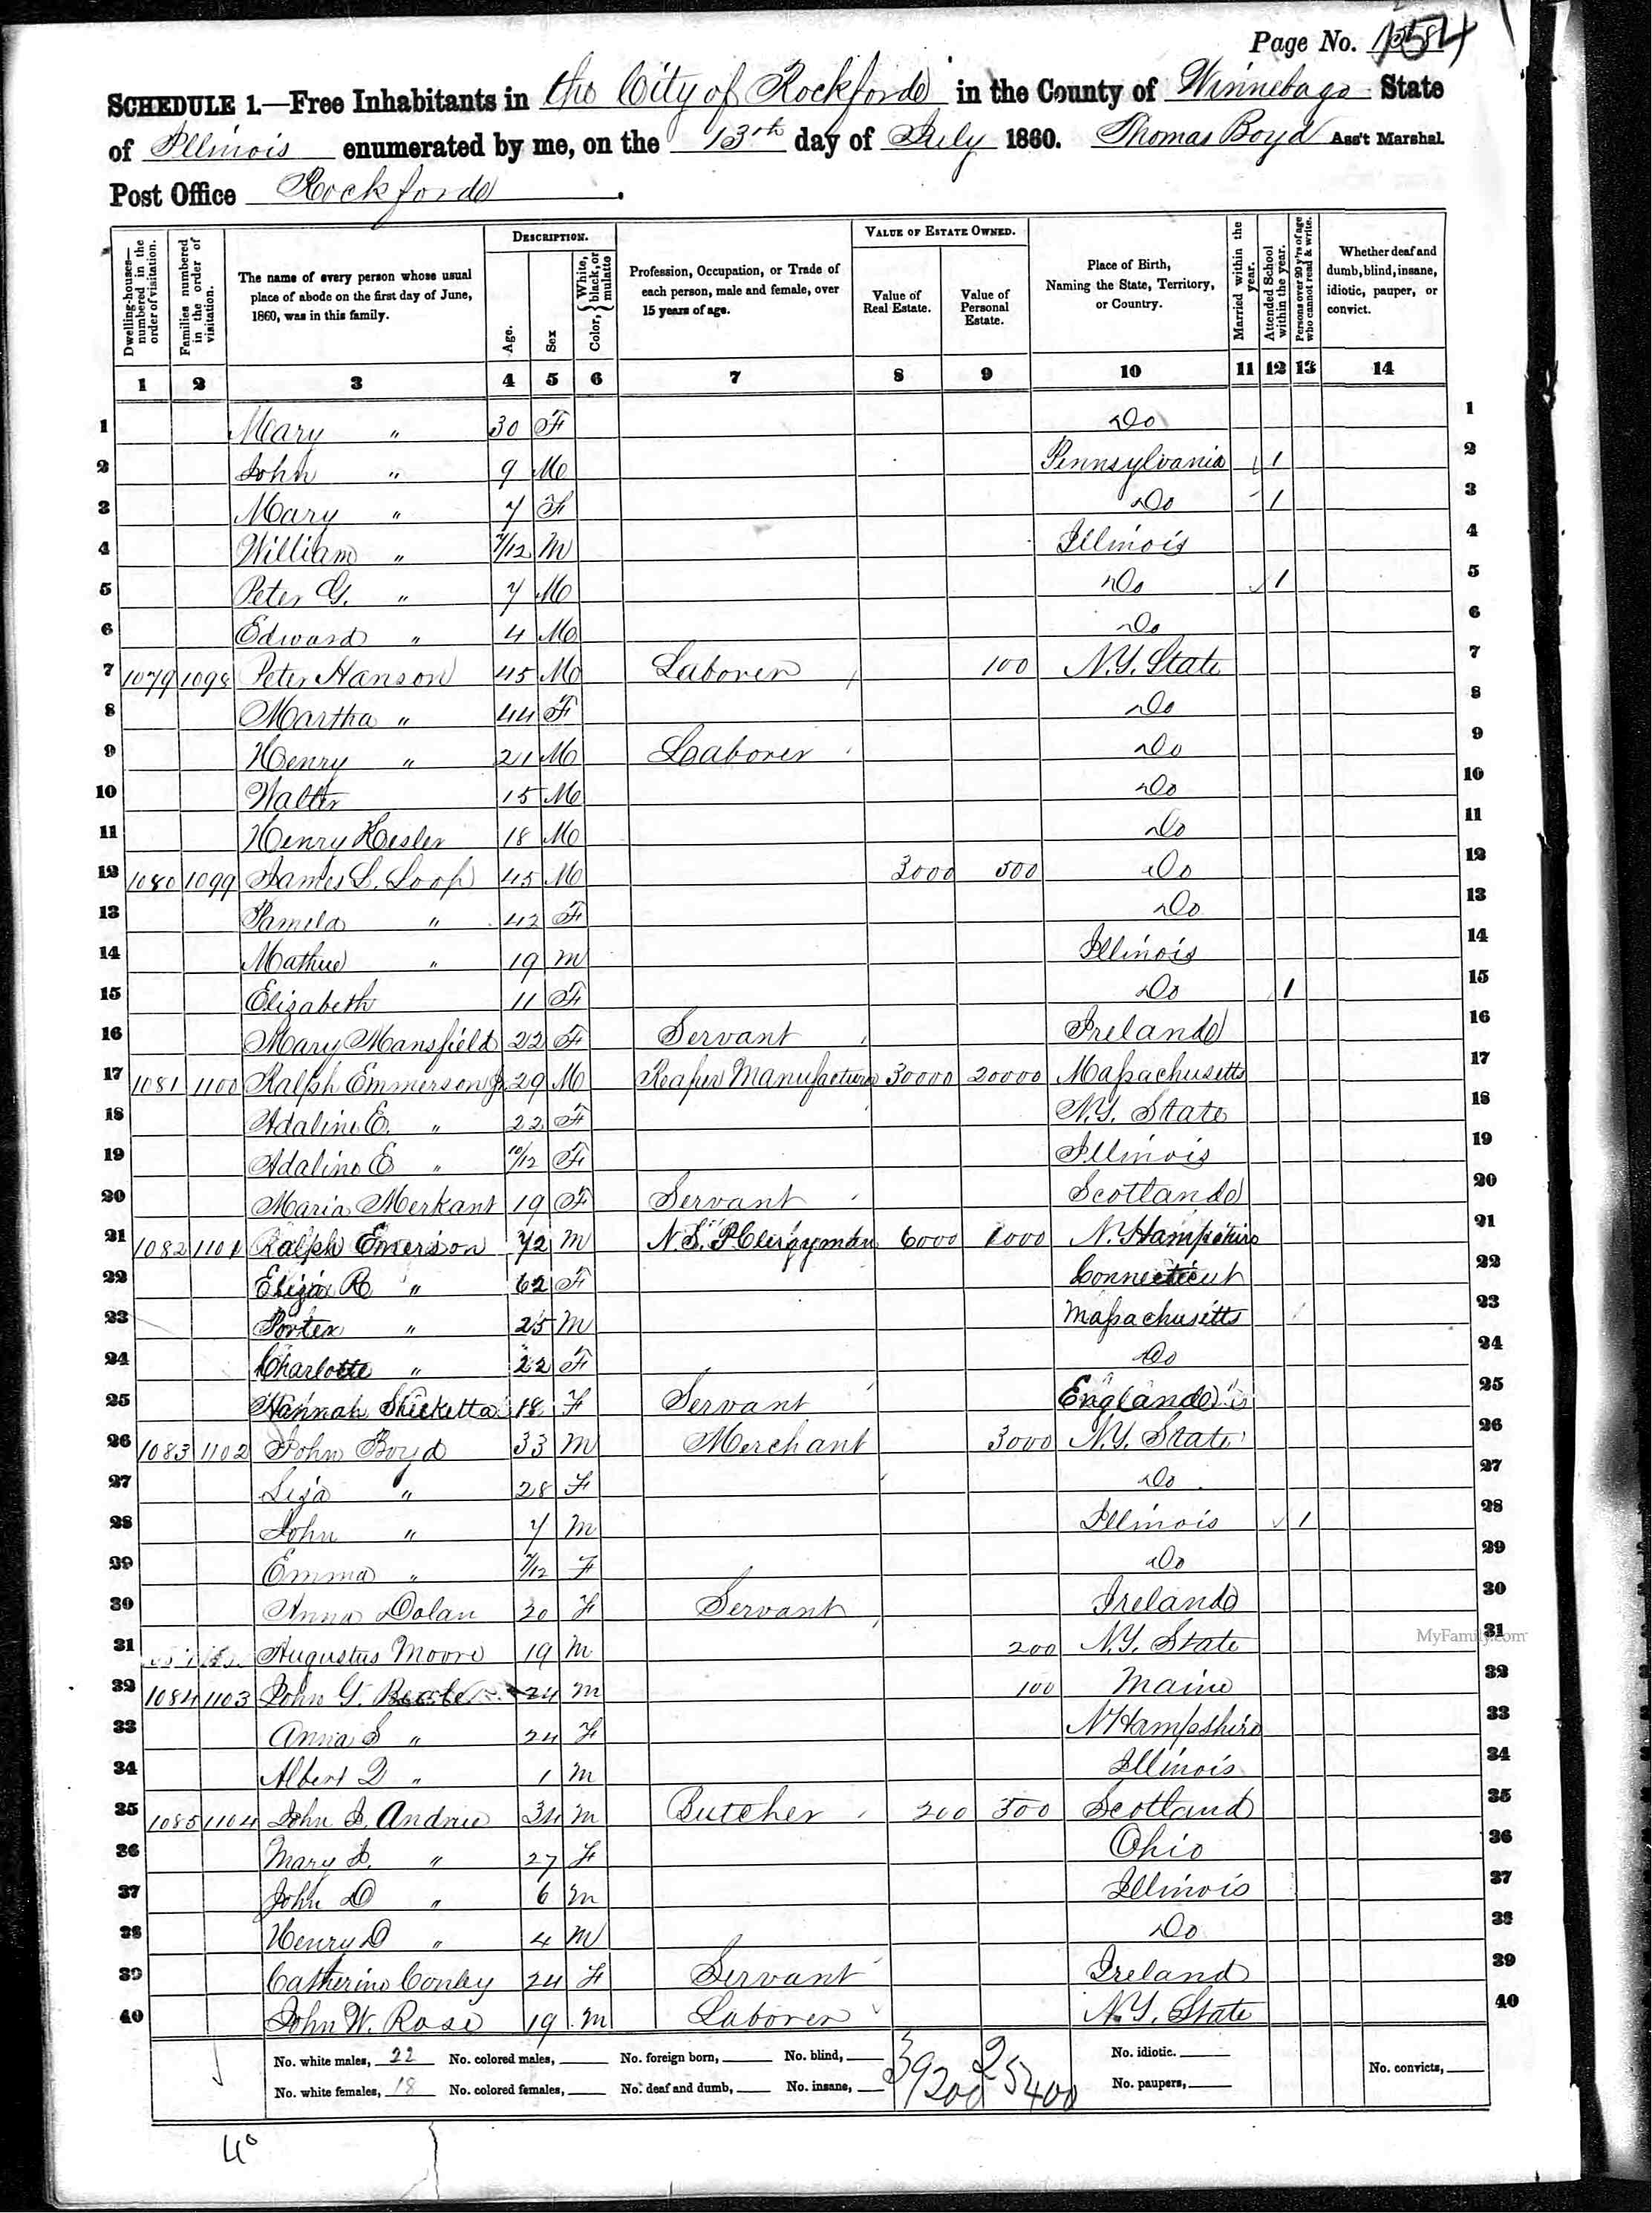 Page No. 154
SCHEDULE 1.—Free Inhabitants in the City of Rockford in the County of Winnebago State
of Illinois enumerated by me, on the 13th day of July 1860. Thomas Boyd Ass't Marshal.
Post Office Rockford.
Dwelling-houses—numbered in the order of visitation. Families numbered in the order of visitation. The name of every person whose usual place of abode on the first day of June, 1860, was in this family. DESCRIPTION. Age. Sex Color, { White, black, or mulatto Profession, Occupation, or Trade of each person, male and female, over 15 years of age. VALUE OF ESTATE OWNED. Value of Real Estate. Value of Personal Estate. Place of Birth, Naming the State, Territory, or Country. Married within the year. Attended School within the year. Persons over 20 y'rs of age who cannot read & write. Whether deaf and dumb, blind, insane, idiotic, pauper, or convict.
1 2 3 4 5 6 7 8 9 10 11 12 13 14
1 Mary " 30 F Do 1
2 John " 9 M Pennsylvania 1 2
3 Mary " 7 F Do 1 3
4 William " 7/12 M Illinois 4
5 Peter G. " 7 M Do 1 5
6 Edward " 4 M Do 6
7 1079 1098 Peter Hanson 45 M Laborer 100 N.Y. State 7
8 Martha " 44 F Do 8
9 Henry " 21 M Laborer Do 9
10 Walter 15 M Do 10
11 Henry Hesler 18 M Do 11
12 1080 1099 James L. Loop 45 M 3000 500 Do 12
13 Pamela " 42 F Do 13
14 Mathue " 19 M Illinois 14
15 Elizabeth 11 F Do 1 15
16 Mary Mansfield 22 F Servant Ireland 16
17 1081 1100 Ralph Emmerson Jr 29 M Reaper Manufacturer 30000 20000 Massachusetts 17
18 Adaline E. " 22 F N.Y. State 18
19 Adaline E " 10/12 F Illinois 19
20 Maria Merkant 19 F Servant Scotland 20
21 1082 1101 Ralph Emerson 72 M N.S. P Clergyman 6000 1000 N. Hampshire 21
22 Eliza R " 62 F Connecticut 22
23 Porter " 25 M Massachusetts 23
24 Charlotte " 22 F Do 24
25 Hannah 18 F Servant England 25
26 1083 1102 John Boyd 33 M Merchant 3000 N.Y. State 26
27 Liza " 28 F Do 27
28 John " 7 M Illinois 1 28
29 Emma " 7/12 F Do 29
30 Anna Dolan 20 F Servant Ireland 30
31 Augustus Moore 19 M 200 N.Y. State 31
MyFamily.com
32 1084 1103 John G. 24 M 100 Maine 32
33 Anna S " 24 F N Hampshire 33
34 Albert D " 1 M Illinois 34
35 1085 1104 John J. Andrew 34 M Butcher 200 500 Scotland 35
36 Mary J. " 27 F Ohio 36
37 John D " 6 M Illinois 37
38 Henry D " 4 M Do 38
39 Catherine Conley 24 F Servant Ireland 39
40 John W. Rose 19 M Laborer N.Y. State 40
No. white males, 22 No. colored males, No. foreign born, No. blind, 39200 25400 No. idiotic. No. convicts,
No. white females, 18 No. colored females, No. deaf and dumb, No. insane, No. paupers,
40